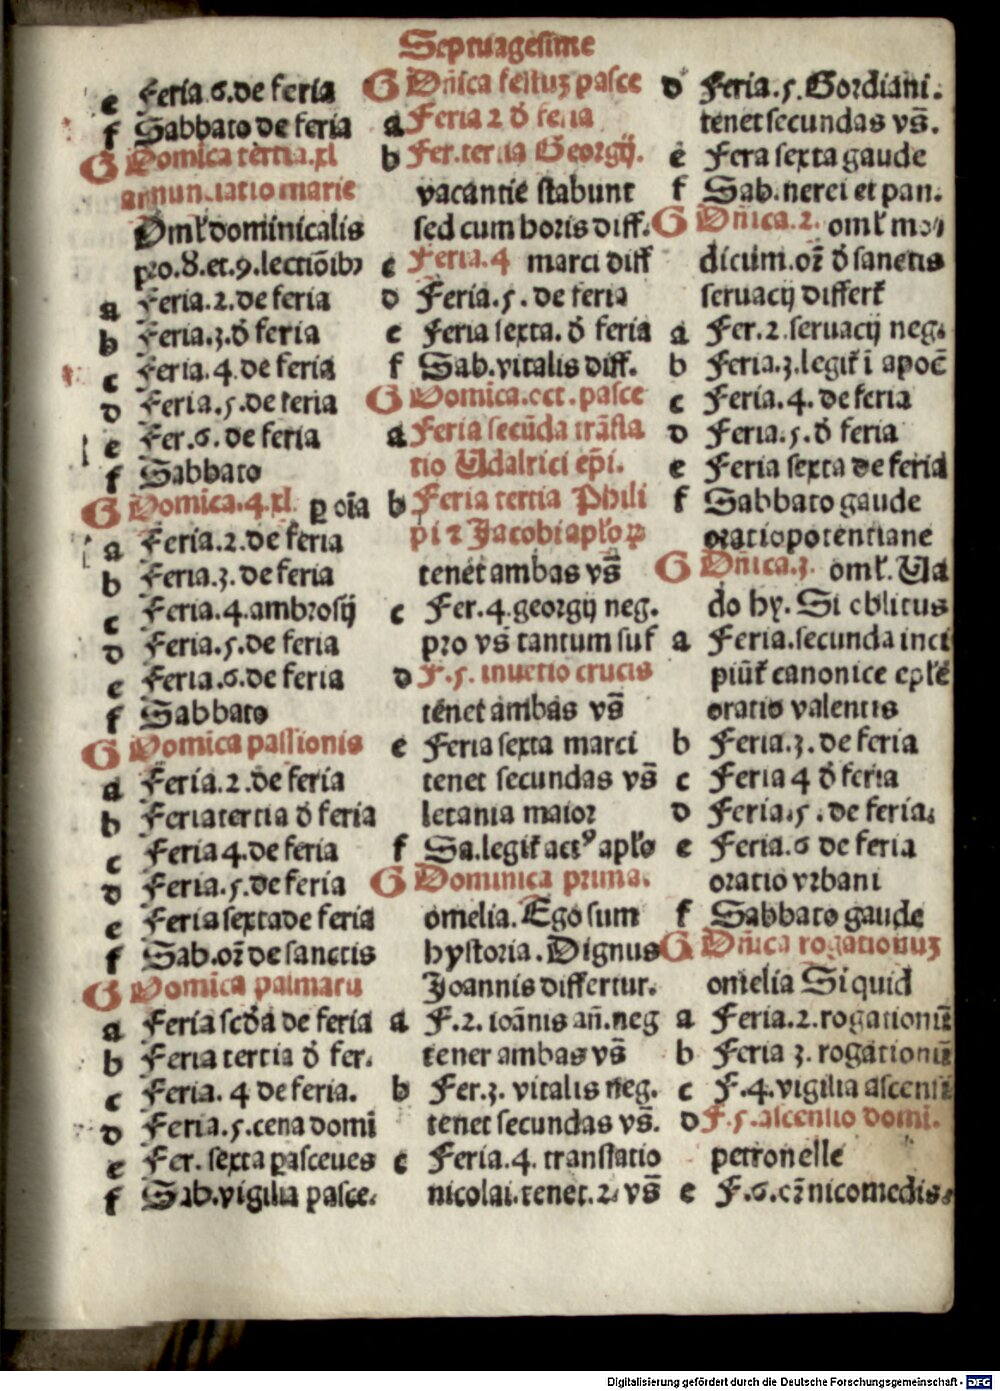 Septuagesime
e Feria.6.de feria
f Sabbato de feria
G Domīca tertia.xl
annunciatio marie
Omł dominicalis
pro.8.et.9.lectiōibꝫ
a Feria.2.de feria
b Feria.3.ð feria
c Feria.4.de feria
d Feria.5.de feria
e Fer.6.de feria
f Sabbato
G Domīca.4.xl. ꝑ oīa
a Feria.2.de feria
b Feria.3.de feria
c Feria.4.ambrosij
d Feria.5.de feria
e Feria.6.de feria
f Sabbato
G Domīca passionis
a Feria.2.de feria
b Feria tertia ð feria
c Feria 4.de feria
d Feria.5.de feria
e Feria sexta de feria
f Sab.or̄ de sanctis
G Domīca palmaru
a Feria scďa de feria
b Feria tertia ð fer.
c Feria. 4 de feria.
d Feria.5.cena domī
e Fer. sexta ꝑasceues
f Sab.vigilia pasce.
G Dn̄ica festuꝫ pasce
a Feria 2 ð feria
b Fer.tertia Georgij.
vacantie stabunt
sed cum horis diff.
c Feria.4 marci diff
d Feria.5.de feria
e Feria sexta. ð feria
f Sab.vitalis diff.
G Domīca.oct.pasce
a Feria secūda trāsla
tio Udalrici ep̄i.
b Feria tertia Phili
pi ⁊ Jacobi apłoꝝ
tenet ambas vs̄
c Fer.4.georgij neg.
pro vs̄ tantum suf
d F.5. inuētio crucis
tenet ambas vs̄
e Feria sexta marci
tenet secundas vs̄
letania maior
f Sa.legit̄ actꝰ apło
G Dominica prima.
omelia. Ego sum
hystoria. Dignus
Joannis differtur.
a F.2. ioānis an̄.neg
tenet ambas vs̄
b Fer.3. vitalis neg.
tenet secundas vs̄.
c Feria.4. translatio
nicolai.tenet.2. vs̄
d Feria.5.Gordiani.
tenet secundas vs̄.
e Fera sexta gaude
f Sab.nerei et pan.
G Dn̄ica.2. omł mo⸗
dicum.or̄ ð sanctis
seruacij differt̄
a Fer.2.seruacij neg.
b Feria.3.legit̄ ī apoc̄
c Feria.4.de feria
d Feria.5.ð feria
e Feria sexta de feria
f Sabbato gaude
oratio potentiane
G Dn̄ica.3. omł. Ua
do hy. Si oblitus
a Feria.secunda inci
piūt̄ canonice epłē
oratio valentis
b Feria.3.de feria
c Feria 4 ð feria
d Feria.5.de feria.
e Feria.6 de feria
oratio vrbani
f Sabbato gaude
G Dn̄ica rogationuꝫ
omelia Si quid
a Feria.2.rogationū
b Feria 3. rogationū
c F.4.vigilia ascensi
d F.5.ascensio domi.
petronelle
e F.6.or̄ nicomedis.
Digitalisierung gefördert durch die Deutsche Forschungsgemeinschaft - DFG